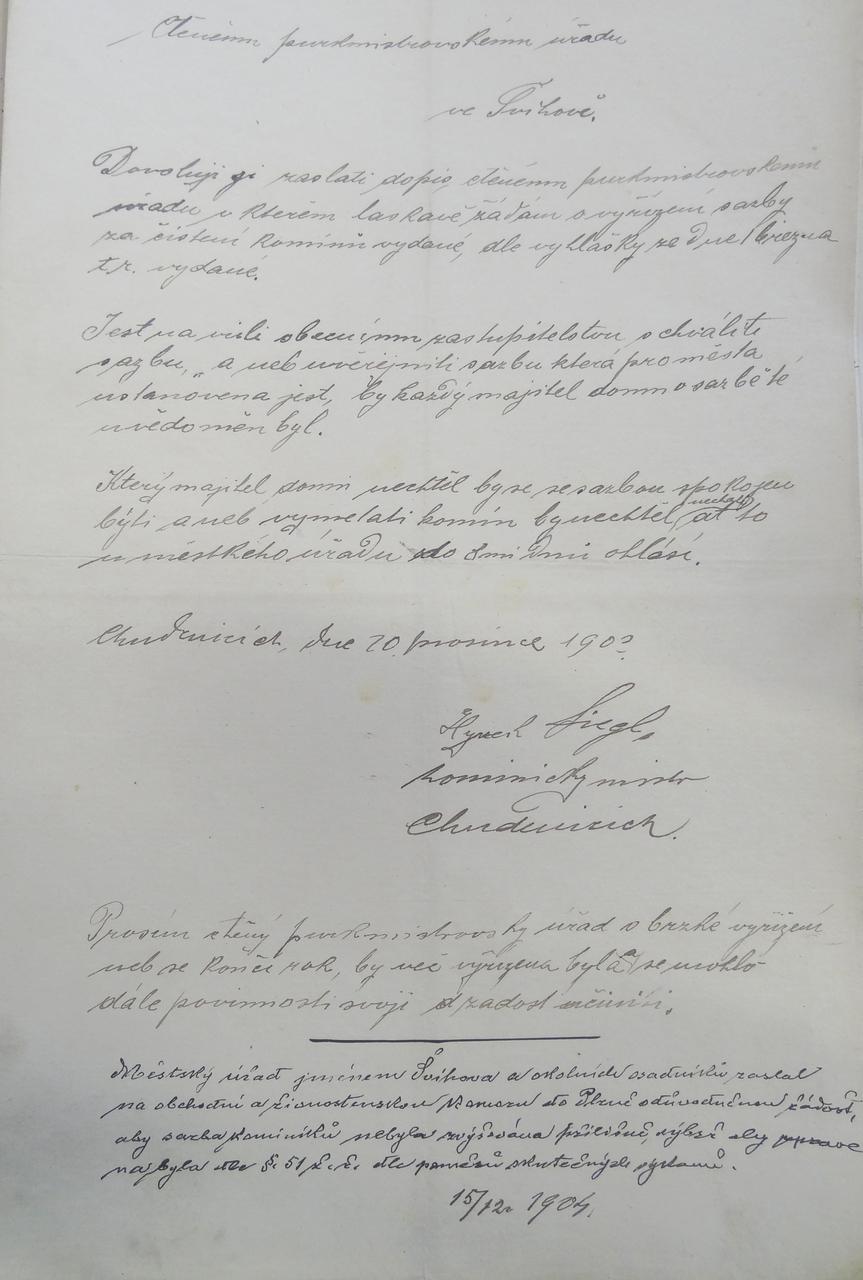 Ctěnému purkmistrovskému úřadu
ve Švihově.
Dovoluji si zaslati dopis ctěnému purkmistrovskému
úřadu, v kterém laskavě žádám o vyřízení sazby
za čistení komínů vydané, dle vyhlášky ze dne 1 března
t.r. vydané.
Jest na vůli obecnímu zastupitelstvu schváliti
sazbu, a neb uveřejniti sazbu která pro města
ustanovena jest, by každý majitel domu o sazbě té
uvědoměn byl.
Který majitel domu nechtěl by se se sazbou spokojen
býti a neb vymetati komín by nechtěl, ať to
u městkého úřadu do 8mi dnů ohlásí.
Chudenicích, dne 20. prosince 190
Hynek Siegl,
kominický mistr
Chudenicích.
Prosím ctěný purkmistrovsky úřad o brzké vyřízení
neb se končí rok, by věc vyřízena byla a se mohlo
dále povinnosti svoji zadost učiniti.
Městský úřad jménem Švihova a okolních osadníků zaslal
na obchodní a živnostenskou komoru do Plzně odůvodněnou žádost,
aby sazba kominíků nebyla zvyšována přílišně, nýbrž aby
najbyla dle §. 51 ž.ř. dle poměrů skutečných
15/12. 1904.